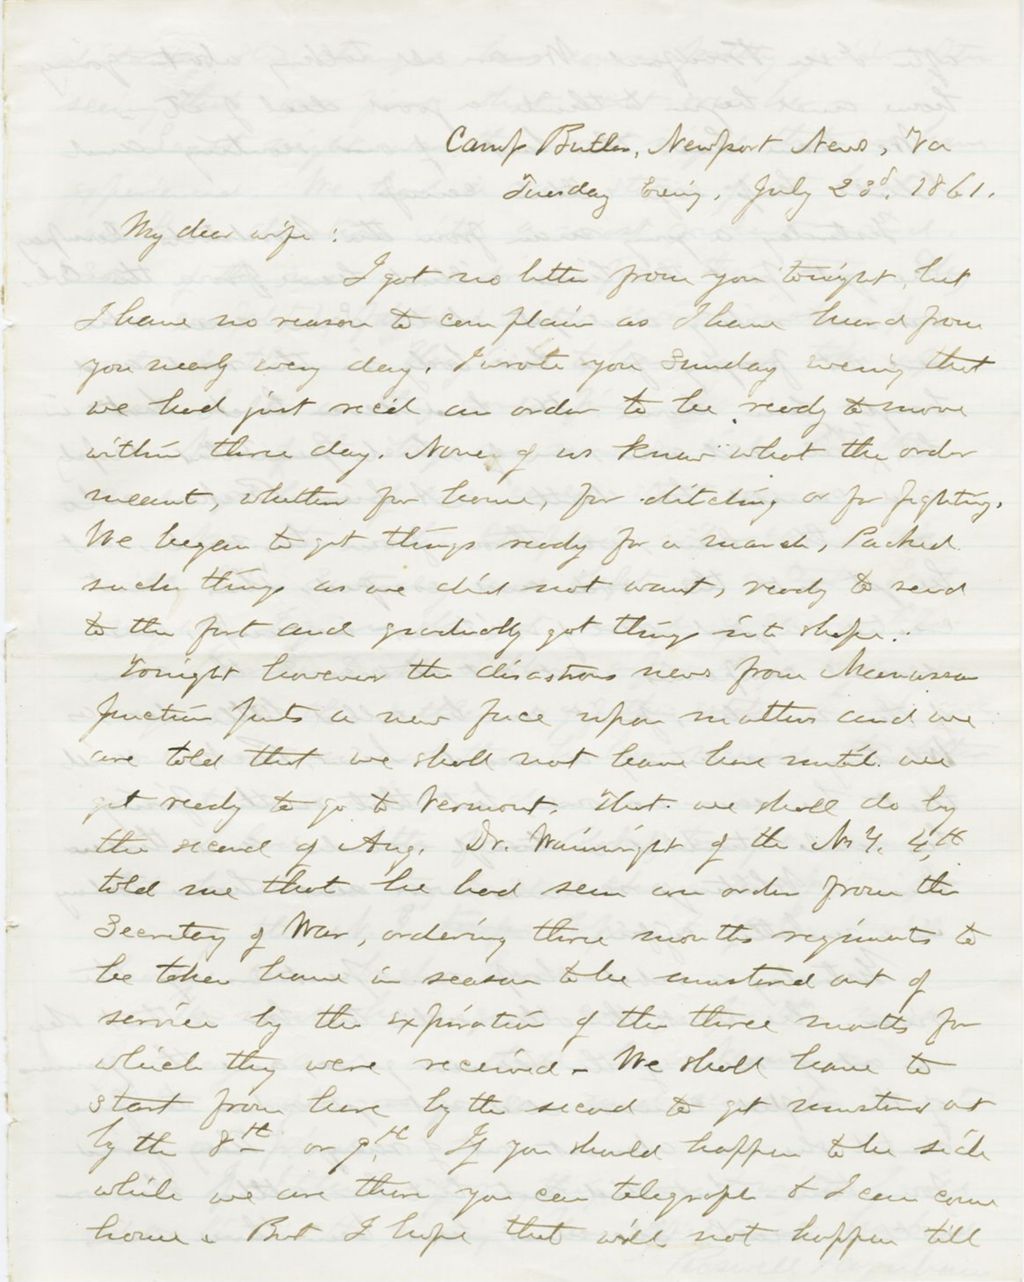 Camp Butler, Newport News, Va
Tuesday Evening, July 23d. 1861.
My dear wife:
I got no letter from you tonight, but
I have no reason to complain as I have heard from
you nearly every day. I wrote you Sunday evening that
we had just rec'd an order to be ready to move
within three day. None of us knew what the order
meant, whether for home, for ditching or for fighting.
We began to get things ready for a march, Packed
such things as we did not want, ready to send
to the fort and gradually got things into shape.
Tonight however the disastrous news from Manassas
Junction puts a new face upon matters and we
are told that we shall not leave here until we
get ready to go to Vermont. That we shall do by
the second of Aug. Dr. Wainwright of the N.Y. 4th
told me that he had seen an order from the
Secretary of War, ordering three months regiments to
be taken home in season to be mustered out of
service by the expiration of the three months for
which they were received - We shall have to
start from here by the second to get mustered out
by the 8th or 9th. If you should happen to be sick
while we are there you can telegraph & I can come
home. But I hope that will not happen till